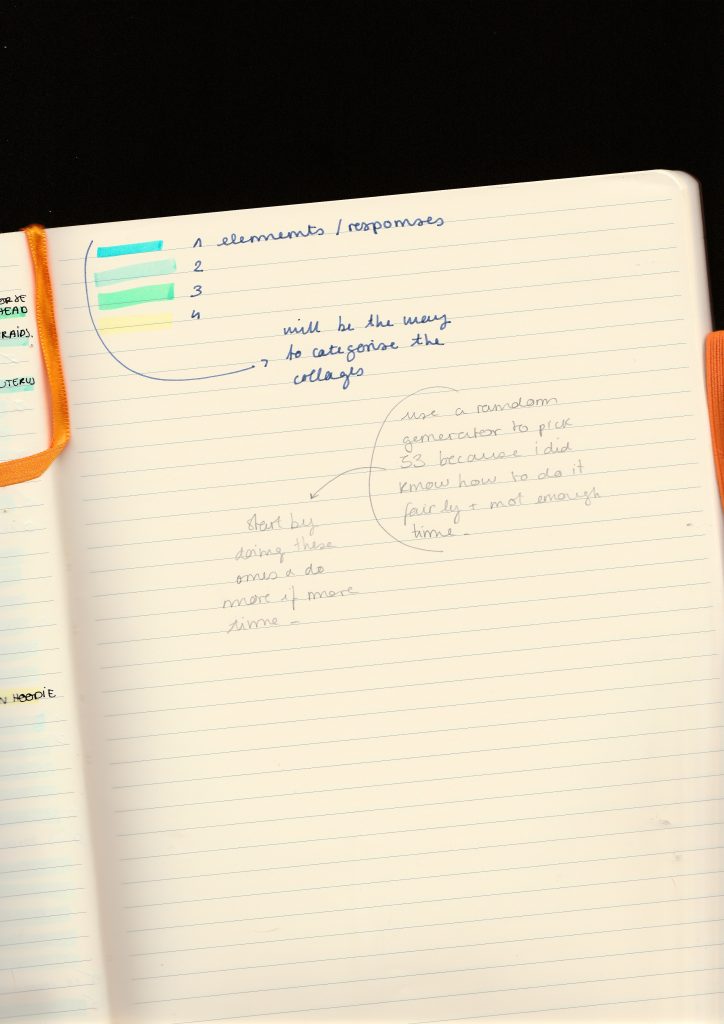 ORSE
HEAD
RAIDS.
UTERUS
N HOODIE
1 elements / responses
2
3
4
will be the way
to categorise the
collages
use a random
generator to pick
53 because i did
know how to do it
fairly + not enough
time -
start by
doing these
ones & do
more if more
time -